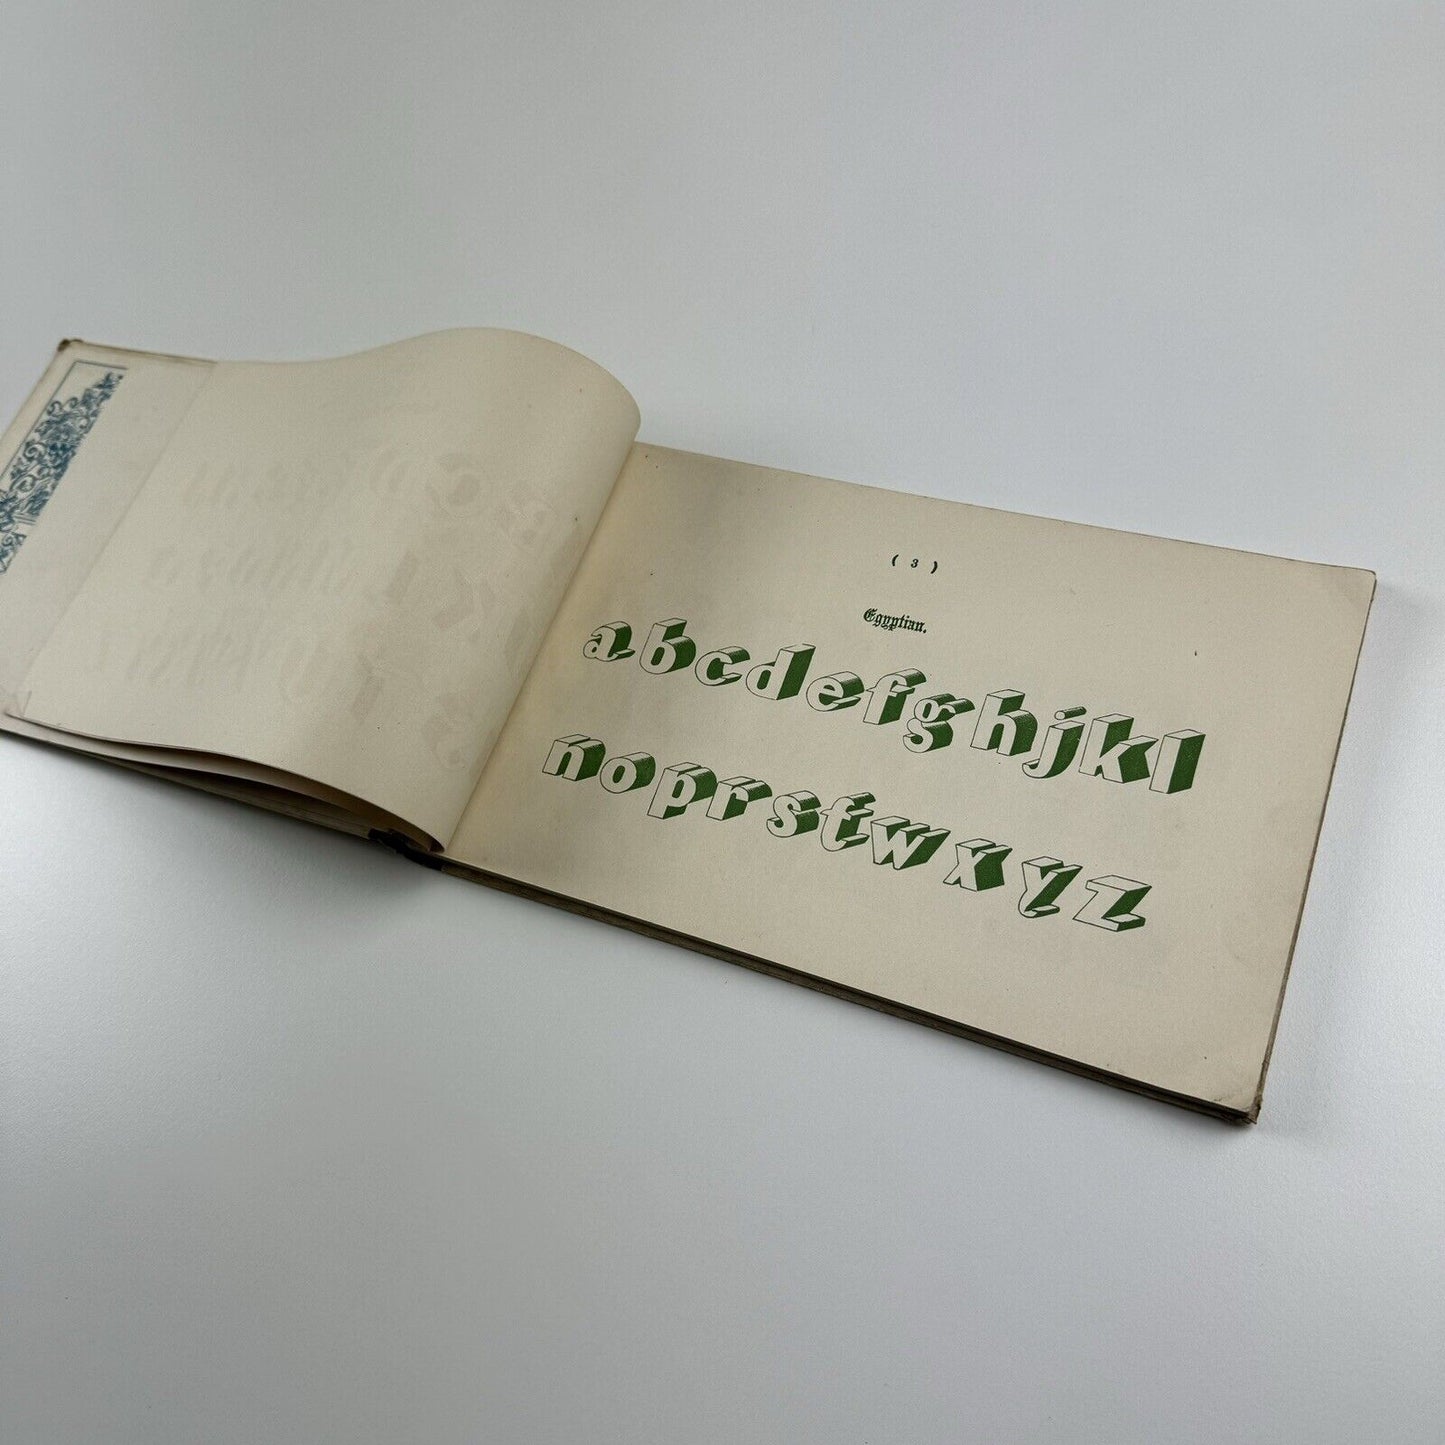 ( 3 )
Egyptian.
abcdefghjkl
noprstwxyz